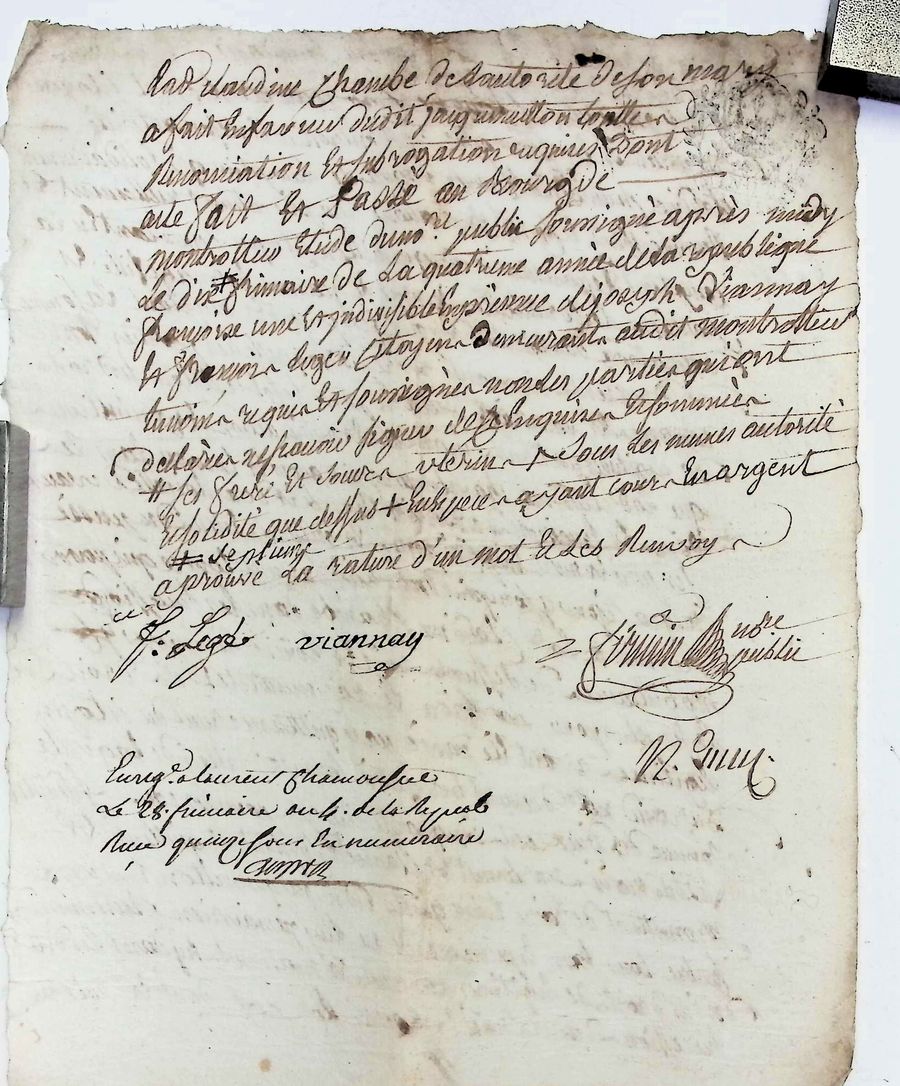 Chambe de Lautorité de son mary
a fait En faveur dudit jacquemetton toutte
Renonciation Et subrogation requises Dont
acte fait Et Passé au Bourg de
montrotier Etude du no.re public soussigné après midy
Le dix # frimaire de La quatrieme année de la republique
françoise une Et indivisible En présence de joseph Viannay
Et françois Leger Citoyens Demeurants audit montrottier
temoins requis Et soussignés non les parties qui ont
declarés ne sçavoir signer de ce Enquises Et sommées
# ses frere Et soeurs uterins + sous Les memes autorité
Et solidité que dessus + En especes ayant cours En argent
# septieme
aprouvé La rature d'un mot Et Les Renvoys
F: Legé viannay
no.re
public
Enreg.é a Laurent Chamousset
Le 28. frimaire an 4. de la Repub
Recu quinze sous En numeraire